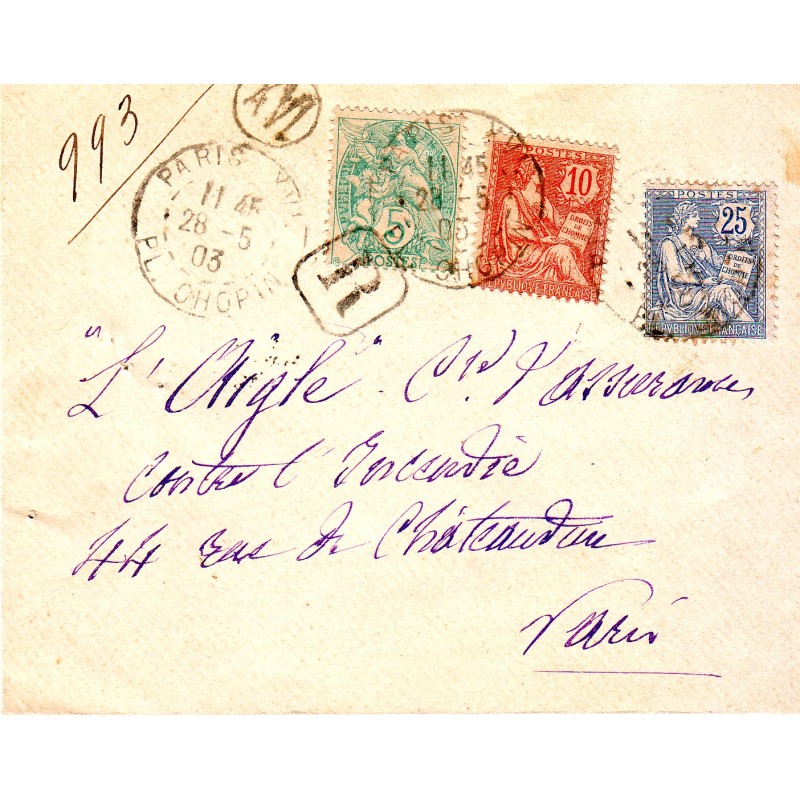 993
PARIS XVI
11 45
28 -5
03
PL. CHOPIN
R
5
POSTES
POSTES
10
DROITS
DE
L'HOMME
REPVBLIQVE FRANÇAISE
POSTES
25
DROITS
DE
L'HOMME
REPVBLIQVE FRANÇAISE
11 45
03
"L'Aigle" Cie d'assurances
contre l'Incendie
44 rue de Châteaudun
Paris